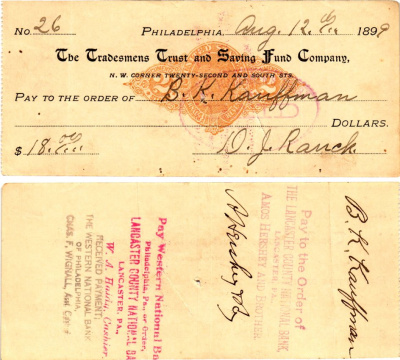 No. 26 PHILADELPHIA, Aug. 12th 1899
The Tradesmens Trust and Saving Fund Company,
N. W. CORNER TWENTY-SECOND AND SOUTH STS.
PAY TO THE ORDER OF B. K. Kauffman
DOLLARS.
$ 18.00 D. J. Ranck
B. K. Kauffman
Pay to the Order of
THE LANCASTER COUNTY NATIONAL BANK,
LANCASTER, PA.,
AMOS HERSHEY AND BROTHER.
A Hershey & Bro
Pay Western National Bank
Philadelphia, Pa., or Order,
LANCASTER COUNTY NATIONAL BANK
LANCASTER, PA.,
Cashier.
RECEIVED PAYMENT,
THE WESTERN NATIONAL BANK
OF PHILADELPHIA.
CHAS. F. WIGNALL,